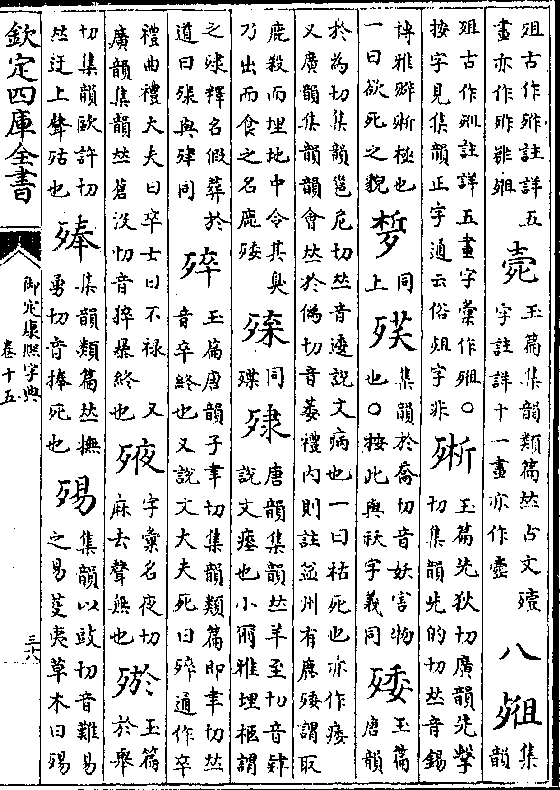 殂古作註詳五
畫亦作
玉篇集韻類篇𠀤古文殰
字註詳十一畫亦作
八
殂
集
韻
殂古作註詳五畫字彙作殂○
按字見集韻正字通云俗殂字非
玉篇先狄切廣韻先擊
切集韻先的切𠀤音錫
博雅極也
一曰欲死之貌
同
上
集韻於喬切音妖害物
也○按此與祅字義同
玉篇
唐韻
於為切集韻邕危切𠀤音逶說文病也一曰枯死也亦作痿
又廣韻集韻韻會𠀤於偽切音萎禮內則註益州有鹿謂取
鹿殺而埋地中令其臭
乃出而食之名鹿
同
殔
唐韻集韻𠀤羊至切音肄
說文瘞也小爾雅埋柩謂
之殔釋名假葬於
道曰殔與肂同
玉篇唐韻子聿切集韻類篇即聿切𠀤
音卒終也又說文大夫死曰通作卒
禮曲禮大夫曰卒士曰不祿 又
廣韻集韻𠀤蒼沒切音捽暴終也
字彙名夜切
麻去聲無也
玉篇
於舉
切集韻歐許切
𠀤迂上聲也
集韻類篇𠀤撫
勇切音捧死也
集韻以豉切音難易
之易芟夷草木曰
欽定四庫全書
御定康熙字典
卷十五
三六